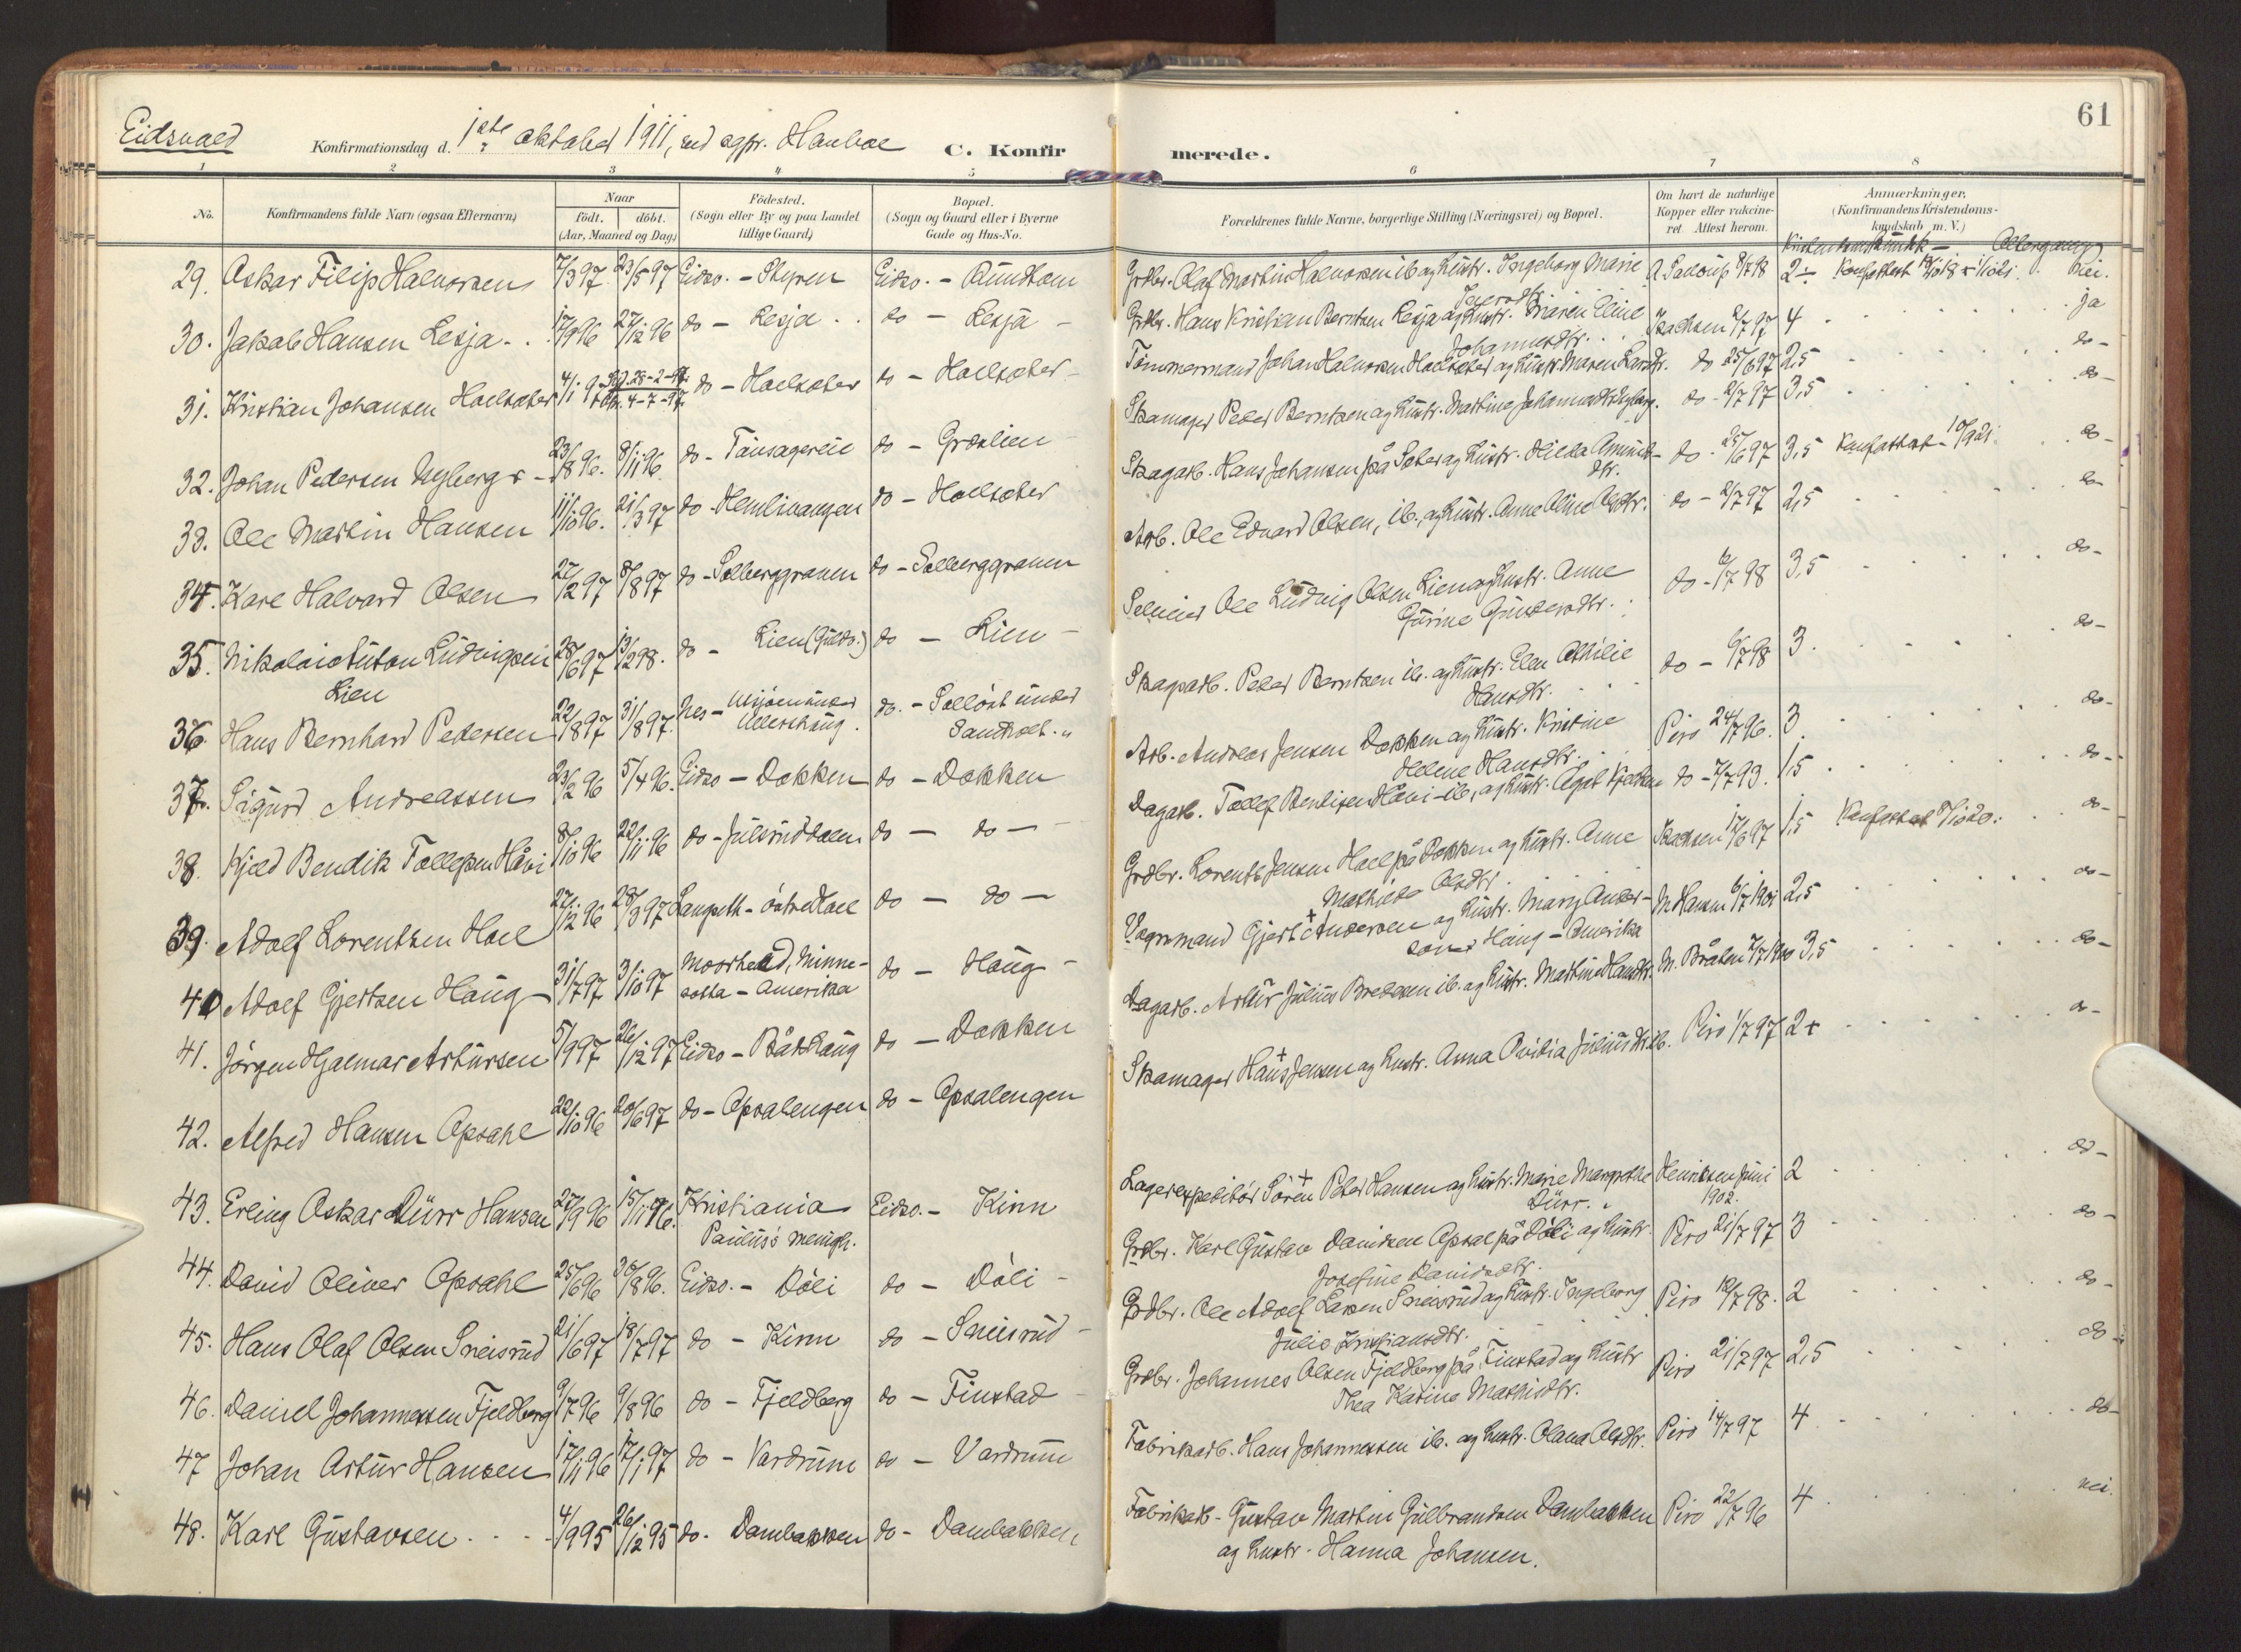 61
Eidsvold
Konfirmationsdag d. 1ste oktober 1911, ved sgpr. Hauboe C. Konfirmerede.
1 2 3 4 5 6 7 8
No. Konfirmandens fulde Navn (ogsaa Efternavn) Naar født. døbt. (Aar, Maaned og Dag) Fødested. (Sogn eller By og paa Landet tillige Gaard) Bopæl. (Sogn og Gaard eller i Byerne Gade og Hus-No. Forældrenes fulde Navne, borgerlige Stilling (Næringsvei) og Bopæl. Om havt de naturlige Kopper eller vakcineret Attest herom. Anmærkninger. (Konfirmandens Kristendomskundskab m. V.)
29. Oskar Filip Halvorsen 7/3 97 23/5 97 Eidsv. - Styren Eidsv. - Grdbr. Olaf Martin Halvorsen ib og hustr. Ingeborg Marie 8/7 98 2÷ nei.
30. Jakob Hansen Lesja 17/9 96 27/12 96 do - Lesja do - Lesja Grdbr. Hans Kristian Berntsen Lesja og hustr. Maren Eline Johannesdtr. Isachsen 2/7 97 4 ja
31. Kristian Johansen Hoelsæter 4/1 97 do - Hoelsæter do - Hoelsæter Tømmermand Johan Halvorsen Hoelsæter og hustr. Maren do 25/6 97 2,5 do-
32. Johan Pedersen Nyberg 23/8 96. 8/11 96 do - do - Græslien Skomager Peder Berntsen og hustr. Martine Johannesdtr. Nyberg. do - 2/7 97 3,5 do-
33. Ole Martin Hansen 11/10 96. 21/3 97 do - Hemlivangen do - Hoelsæter Skogarb. Hans Johansen på Sæter og hustr. Hilda do - 25/6 97 3,5 Konfattest - 10/9 21. do-
34. Karl Halvard Olsen 27/2 97 8/8 97 do - Solberggraven do - Solberggraven Arb. Ole Edvard Olsen, ib., og hustr. Anne Oline Olsdtr. do - 2/7 97 2,5 do-
35. Nikolai Anton Ludvigsen Lien 28/6 97 13/2 98. do - Lien do - Lien Selveier Ole Ludvig Olsen Lien og hustr. Anne Gurine Gundersdtr. do - 6/7 98 3,5 do-
36. Hans Bernhard Pedersen 22/8 97 31/8 97 Nes - do. - under Skogsarb. Peder Berntsen ib. og hustr. Elen Othilie Hansdtr. do - 6/7 98 3. do-
37. Sigurd Andreassen 23/2 96 5/4 96. Eidsv - Dokken do - Dokken Arb. Andreas Jensen Dokken og hustr. Kristine Helene Hansdtr. Piro 24/7 96. 3 do-
38. Kjeld Bendik Tollefsen Håvi 8/10 96 22/11 96 do - Julsruddalen do - do - Dagarb. Tollef Bendiksen Håvi - ib, og hustr. do - 7/7 93. 1,5 do-
39. Adolf Lorentsen Hoel 27/12 96 28/3 97 Langseth - østre Hoel do - do - Grdbr. Lorents Jensen Hoel på Dokken og hustr. Anne Mathilde Olsdtr. Isachsen 17/6 97 1,5 Konfattest do-
40 Adolf Gjertsen Haug 31/7 97 3/10 97 Moorhead, Minnesotta - Amerika do - Haug Vognmand Gjert + Anderssen og hustr. Marij Haug - Amerika M. Hansen 6/7 1901 2,5 do-
41. Jörgen Hjalmar Artursen 5/9 97 26/12 97 Eidsv - Båkhaug do - Dokken Dagarb. Artur Julius Bredesen ib. og hustr. Martine Hansdtr. M. Bråten 7/7 1900 3,5 do-
42. Alfred Hansen Opsahl 22/10 96 20/6 97 do - Opsalengen do - Opsalengen Skomager Hans + Jensen og hustr. Anna Ovidia Juliusdtr. ib. Piro 1/7 97 2+ do-
43. Erling Oskar Dürr Hansen 27/9 96 15/11 96. Kristiania Paulus's menigh. Eidsv. - Kinn Lagerexpeditör Sören + Peter Hansen og hustr. Marie Margrethe Dürr. Henriksen juni 1902. 2 do-
44. David Oliver Opsahl 25/6 96 30/8 96. Eidsv. - Döli do - Döli Grdbr. Karl Gustav Davidsen Opsal på Döli og hustr. Josefine Davidsdtr. Piro 21/7 97 3 do-
45. Hans Olaf Olsen Sneisrud 21/6 97 18/7 97 do - Kinn do - Sneisrud Grdbr. Ole Adolf Larsen Sneisrud og hustr. Ingeborg Julie Kristiansdtr. Piro 12/7 98. 2 do-
46. Daniel Johannessen Fjeldberg 9/7 96 9/8 96 do - Fjeldberg do - Finstad Grdbr. Johannes Olsen Fjeldberg på Finstad og hustr Thea Karine Mathisdtr. Piro 21/7 97 2,5 do-
47 Johan Artur Hansen 17/11 96 17/1 97 do - Vardrum do - Vardrum Fabrikarb. Hans Johannessen ib. og hustr. Olava Olsdtr. Piro 14/7 97 4 do-
48. Karl Gustavsen 4/9 95 26/12 95 do. Dambakken do - Dambakken Fabrikarb - Gustav Martin Gulbrandsen Dambakken og hustr. Hanna Johansen. Piro 22/7 96 4 nei.